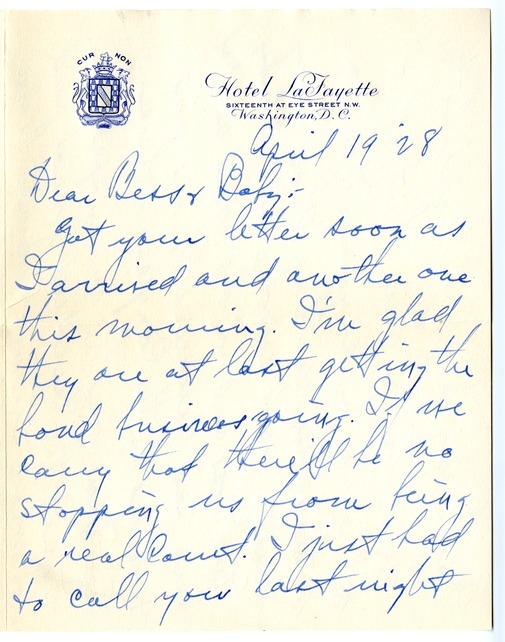 CUR NON
Hotel LaFayette
SIXTEENTH AT EYE STREET N.W.
Washington, D.C.
April 19 '28
Dear Bess & Baby:-
Got your letter soon as
I arrived and another one
this morning. I'm glad
they are at last getting the
bond business going. If we
carry that there'll be no
stopping us from being
a real Court. I just had
to call you last night